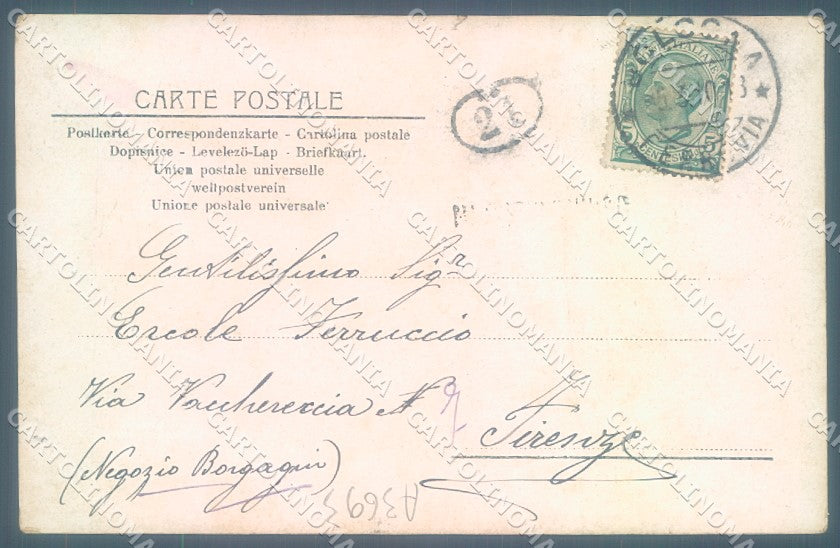 CARTE POSTALE
Postkarte - Correspondenzkarte - Cartolina postale
Dopisnice - Levelezö-Lap - Briefkaart
Union postale universelle
weltpostverein
Unione postale universale
Gentilissimo Sigr
Ercole Ferruccio
Via Vacchereccia N
Firenze
(Negozio Borgagni)
A3693
CARTOLINOMANIA